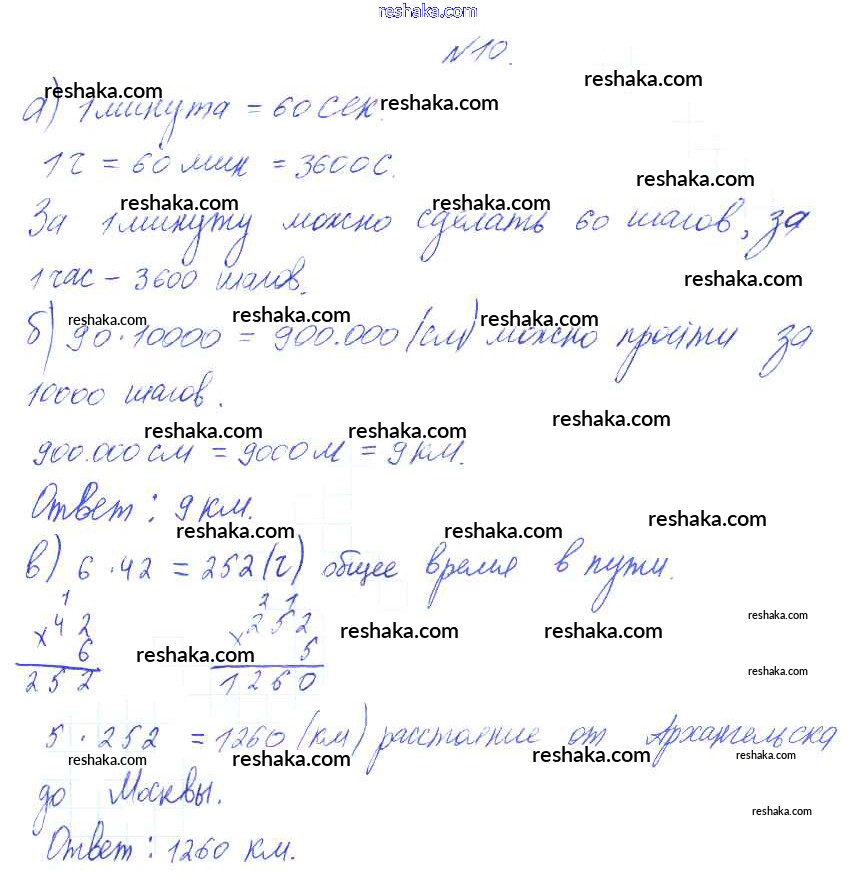 reshaka.com
N10.
reshaka.com
reshaka.com reshaka.com
а) 1 минута = 60 сек.
1 ч = 60 мин = 3600 с.
reshaka.com
reshaka.com reshaka.com
За 1 минуту можно сделать 60 шагов, за
1 час – 3600 шагов.
reshaka.com
reshaka.com reshaka.com reshaka.com
б) 90 · 10000 = 900.000 (см) можно пройти за
10000 шагов.
reshaka.com
reshaka.com reshaka.com
900.000 см = 9000 м = 9 км.
Ответ: 9 км.
reshaka.com
reshaka.com reshaka.com
в) 6 · 42 = 252 (ч) общее время в пути.
1 2 1
× 42 × 252
reshaka.com
reshaka.com reshaka.com
6 5
reshaka.com
reshaka.com
252 1260
5 · 252 = 1260 (км) расстояние от Архангельска
reshaka.com reshaka.com reshaka.com reshaka.com
до Москвы.
reshaka.com
Ответ: 1260 км.